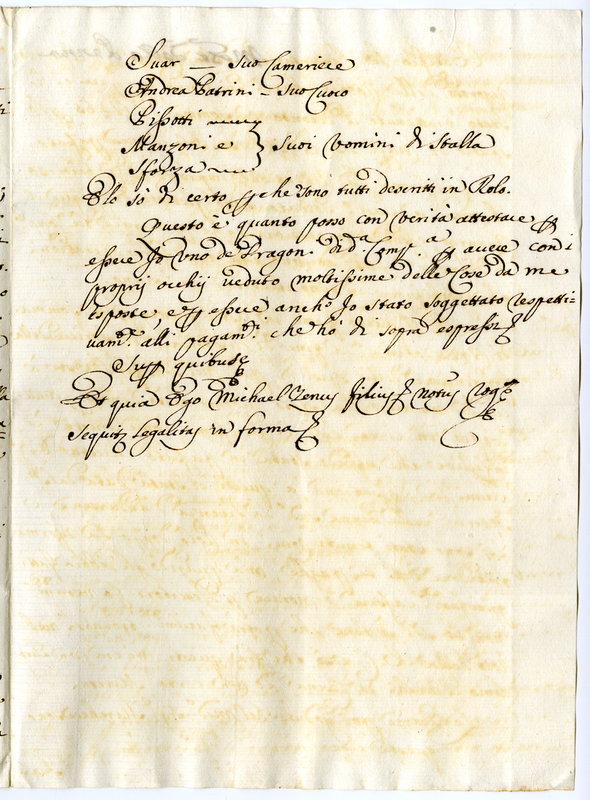 Suar — Suo Cameriere
Andrea Patrini - Suo Cuoco
Bissotti
Manzoni e } suoi Uomini di Stalla
Sforza
E lo sò di certo che sono tutti descritti in Rolo.
Questo è quanto posso con verità attestare
essere Jo uno de Dragoni di dª Compª avere con i
proprij occhij veduto moltissime delle Cose da me
esposte e essere ancho Jo stato soggettato respetti=
uamᵉ alli pagamᵗⁱ che hò di sopra espressi
Supp quibus
Et quia Ego Michael Zenus filius notus rogᵗ
Sequitur Legalitas in forma